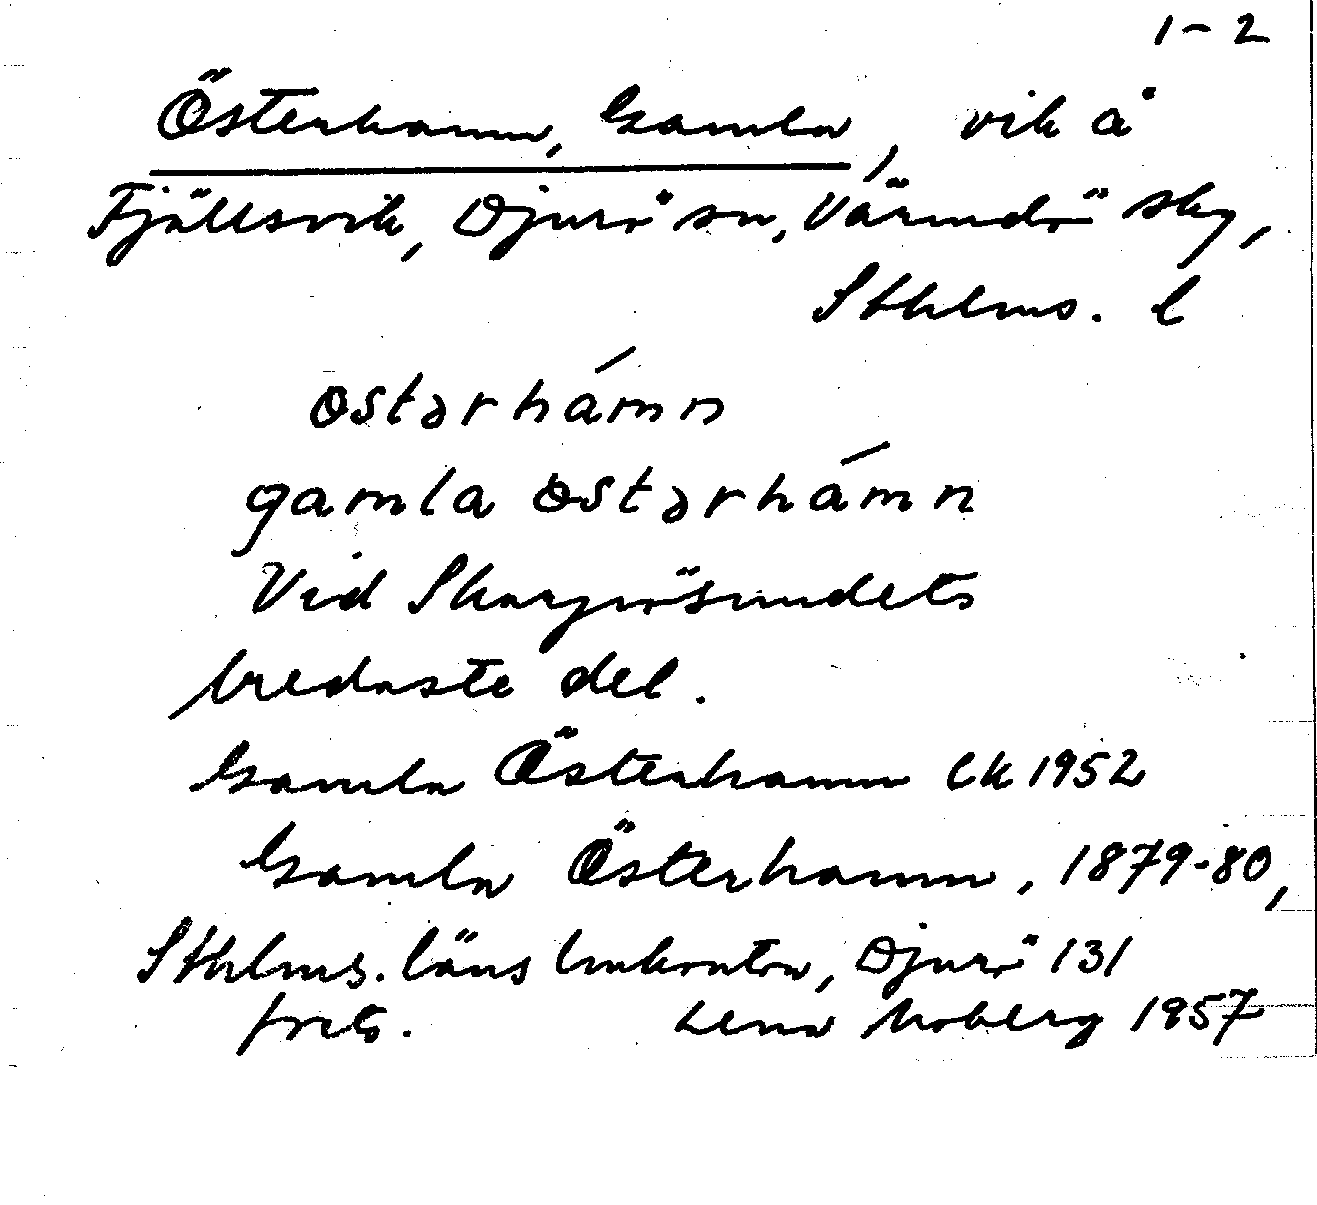 1-2
Österhamn, Gamla, vik å
Fjällsvik, Djurö sn, Värmdö sky,
Sthlms. l
ostərhámn
gamla ostərhámn
Vid Skarprösundets
bredaste del.
Gamla Österhamn Ek 1952
Gamla Österhamn, 1879-80,
Sthlms. läns lmkontor, Djurö 131
forts. Lena Moberg 1957